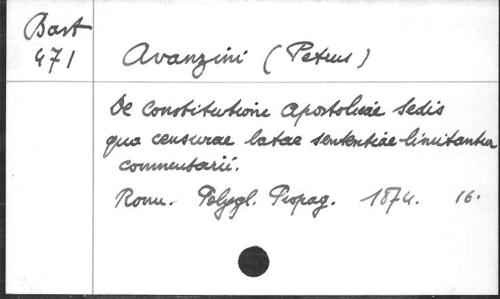 Bart
471
Avanzini (Petrus)
De Constitutione Apostolicae Sedis
qua censurae latae sententiae limitantur
commentarii.
Rom. Polygl. Propag. 1874. 16.